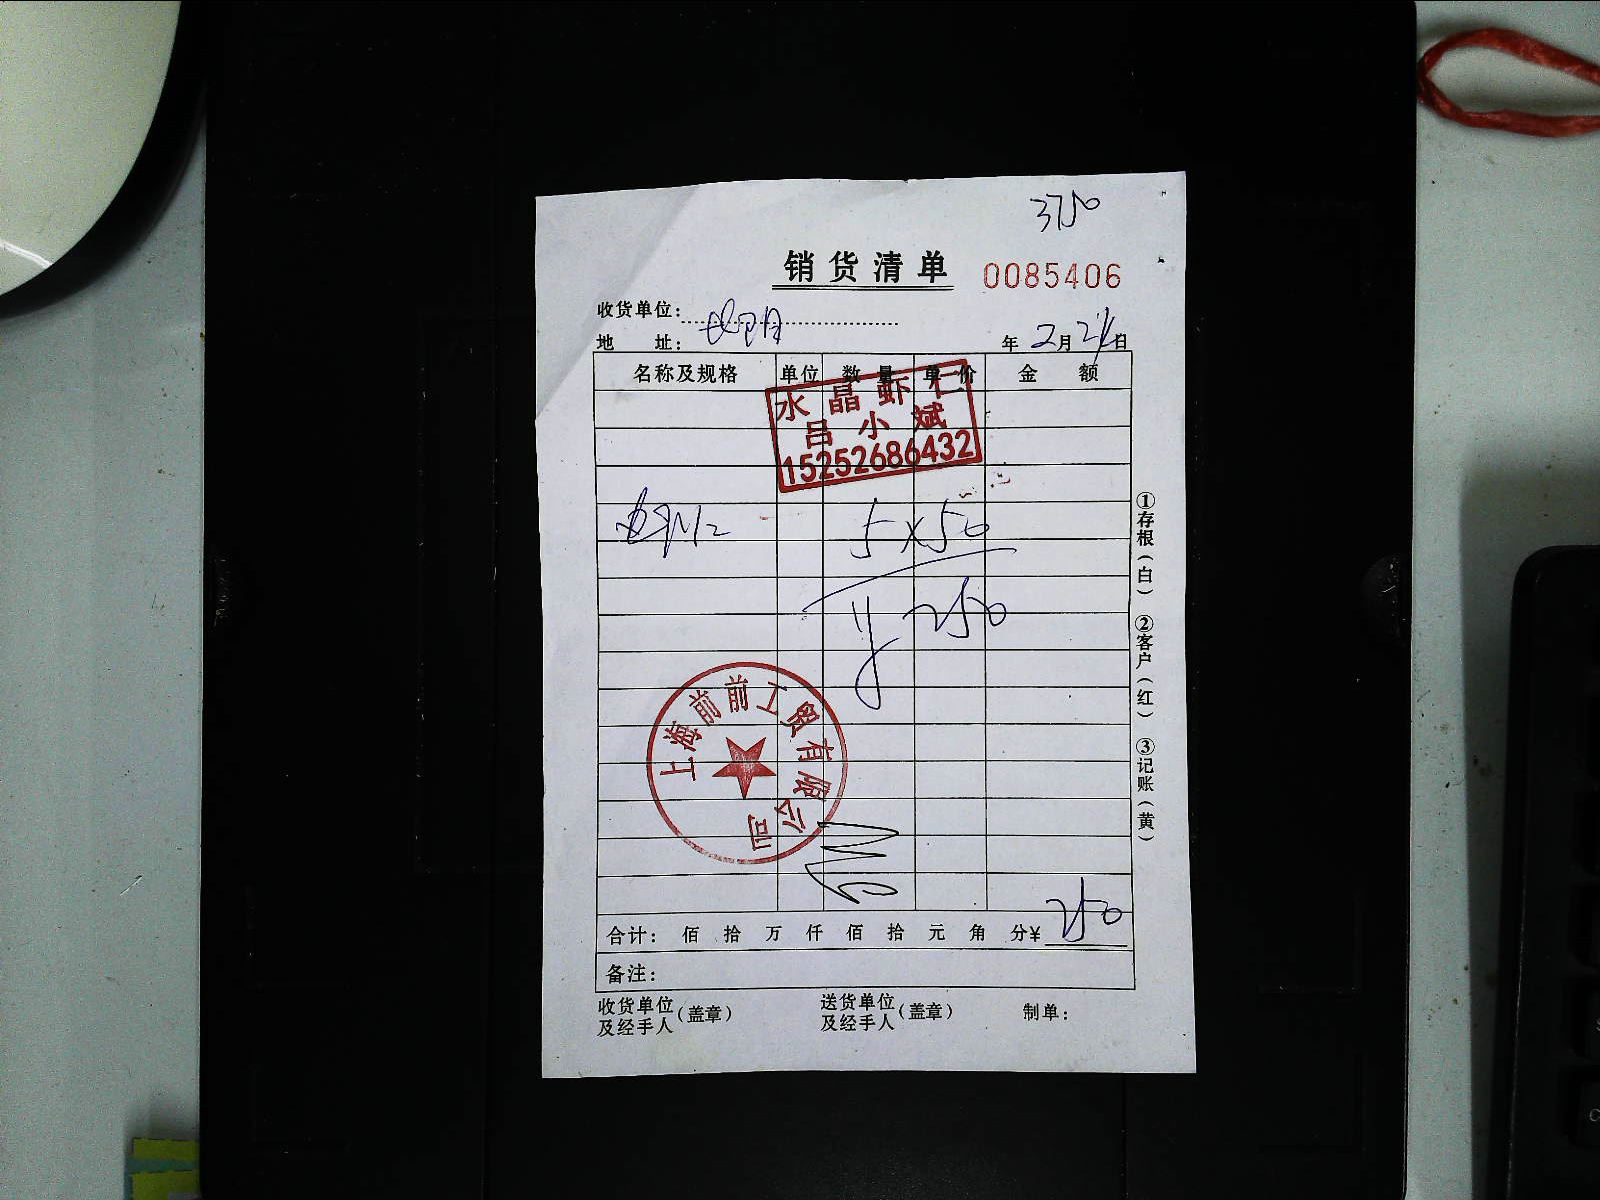 3750
销货清单 0085406
收货单位:
地 址: 年 2月2 日
名称及规格 单位 数量 单价 金额
水晶虾仁
吕小斌
15252686432
5×50
¥250
上海前前工贸有限公司
合计: 佰 拾 万 仟 佰 拾 元 角 分¥ 250
备注:
收货单位及经手人(盖章) 送货单位及经手人(盖章) 制单:
①存根(白) ②客户(红) ③记账(黄)